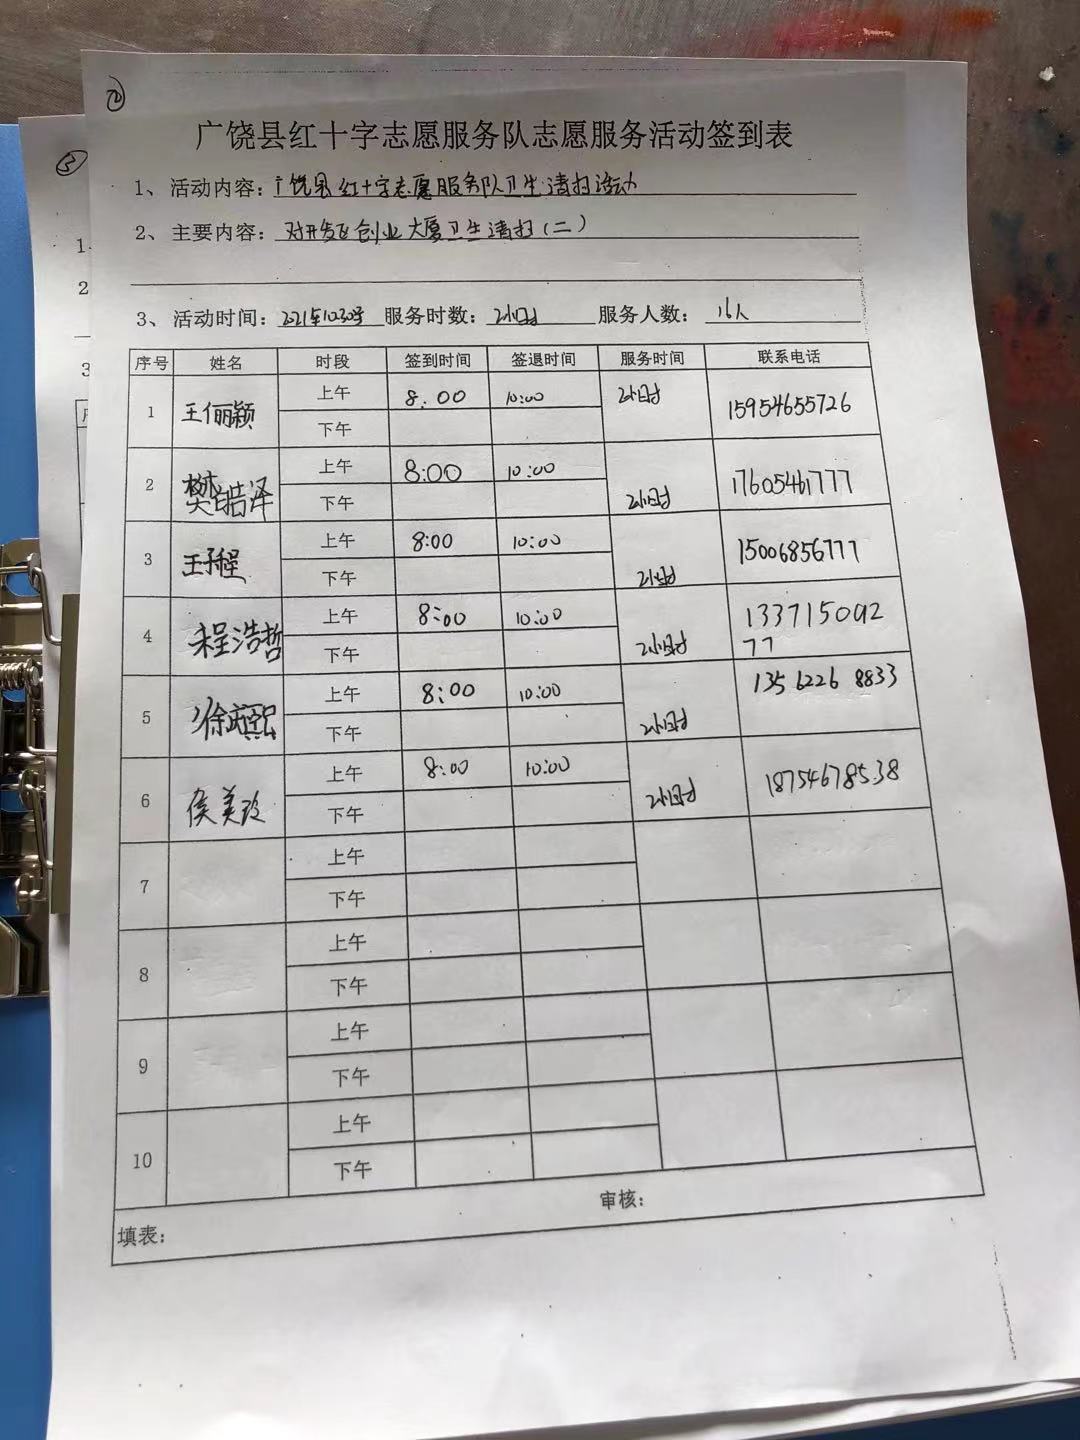 ②
广饶县红十字志愿服务队志愿服务活动签到表
1、活动内容：广饶县红十字志愿服务队卫生清扫活动
2、主要内容：对开发区创业大厦卫生清扫（二）
3、活动时间：2021年10.30号 服务时数：2小时 服务人数：16人
序号 姓名 时段 签到时间 签退时间 服务时间 联系电话
1 王俪颖 上午 8:00 10:00 2小时 15954655726
下午
2 樊皓泽 上午 8:00 10:00 2小时 17605461777
下午
3 王子程 上午 8:00 10:00 2小时 15006856777
下午
4 程浩哲 上午 8:00 10:00 2小时 133715092
下午 77
5 上午 8:00 10:00 2小时 135 6226 8833
下午
6 侯美玫 上午 8:00 10:00 2小时 18754678538
下午
7 上午
下午
8 上午
下午
9 上午
下午
10 上午
下午
填表： 审核：
⑤
1
2
3